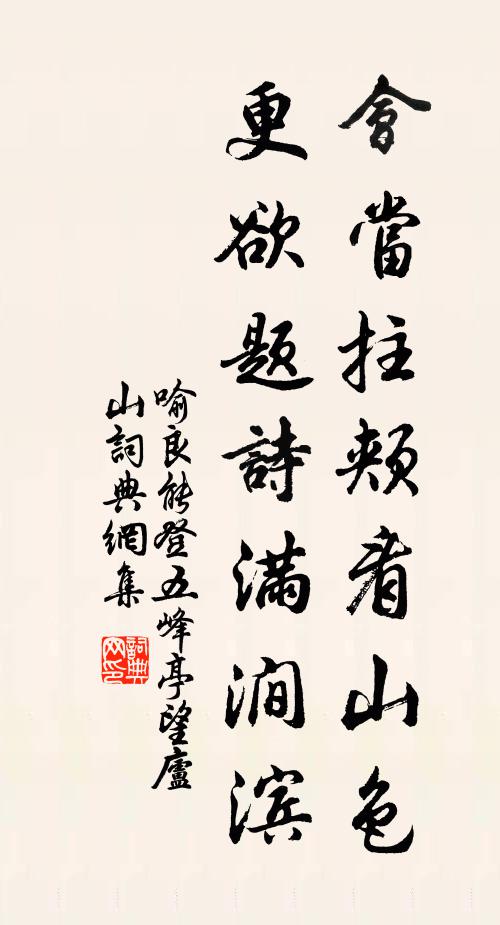 會當拄頰看山色
更欲題詩满澗滨
喻良能登五峰亭望廬
山詞典網集
詞典
网印